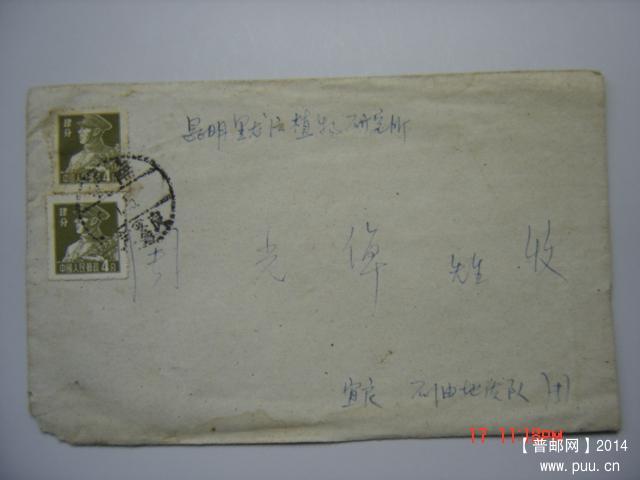 昆明黑龙潭植物研究所
周光倬 先生 收
宜良 石油地质队
肆分
中国人民邮政 4分
肆分
中国人民邮政 4分
宜良
17 11:19
【普邮网】2014
www.puu.cn